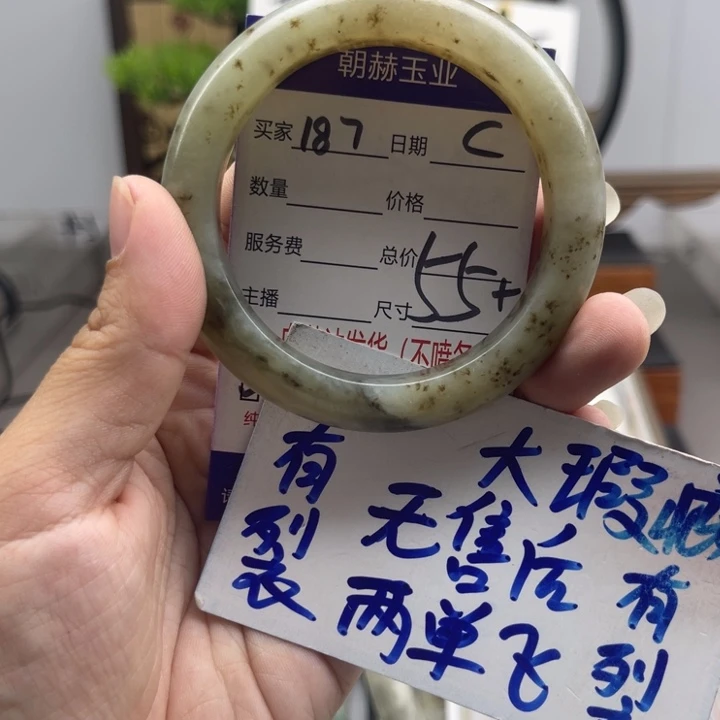 朝赫玉业
买家 187 日期 C
数量 价格
服务费 总价
主播 尺寸 55+
发货（不喷务
有裂
大瑕
无售后
两单飞
有裂